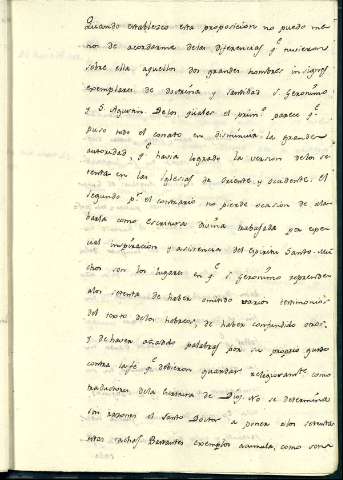 Quando establezco esta proposicion no puedo me-
nos de acordarme de las diferencias q.e tuvieron
sobre ella aquellos dos grandes hombres insignes
exemplares de doctrina y santidad S. Geronimo
y S. Agustin. De los quales el prim.o parece q.e
puso todo el conato en disminuir la grande
autoridad, q.e havia logrado la version de los se-
tenta en las iglesias de oriente y occidente: el
segundo p.r el contrario no pierde ocasion de ala-
barla como escritura divina trabajada por espe-
cial inspiracion y asistencia del espiritu santo. Mu-
chos son los lugares en q.e S. Geronimo reprende
a los setenta de haber omitido varios testimonios
del texto de los hebreos, de haber confundido otros,
y de haver añadido palabras por su propio gusto
contra la fe q.e debieron guardar religiosam.te como
traductores de la Escritura de Dios. No se determina
sin razones el santo Doctor a poner a los setenta
estas tachas. Bastantes exemplos acumula, como son